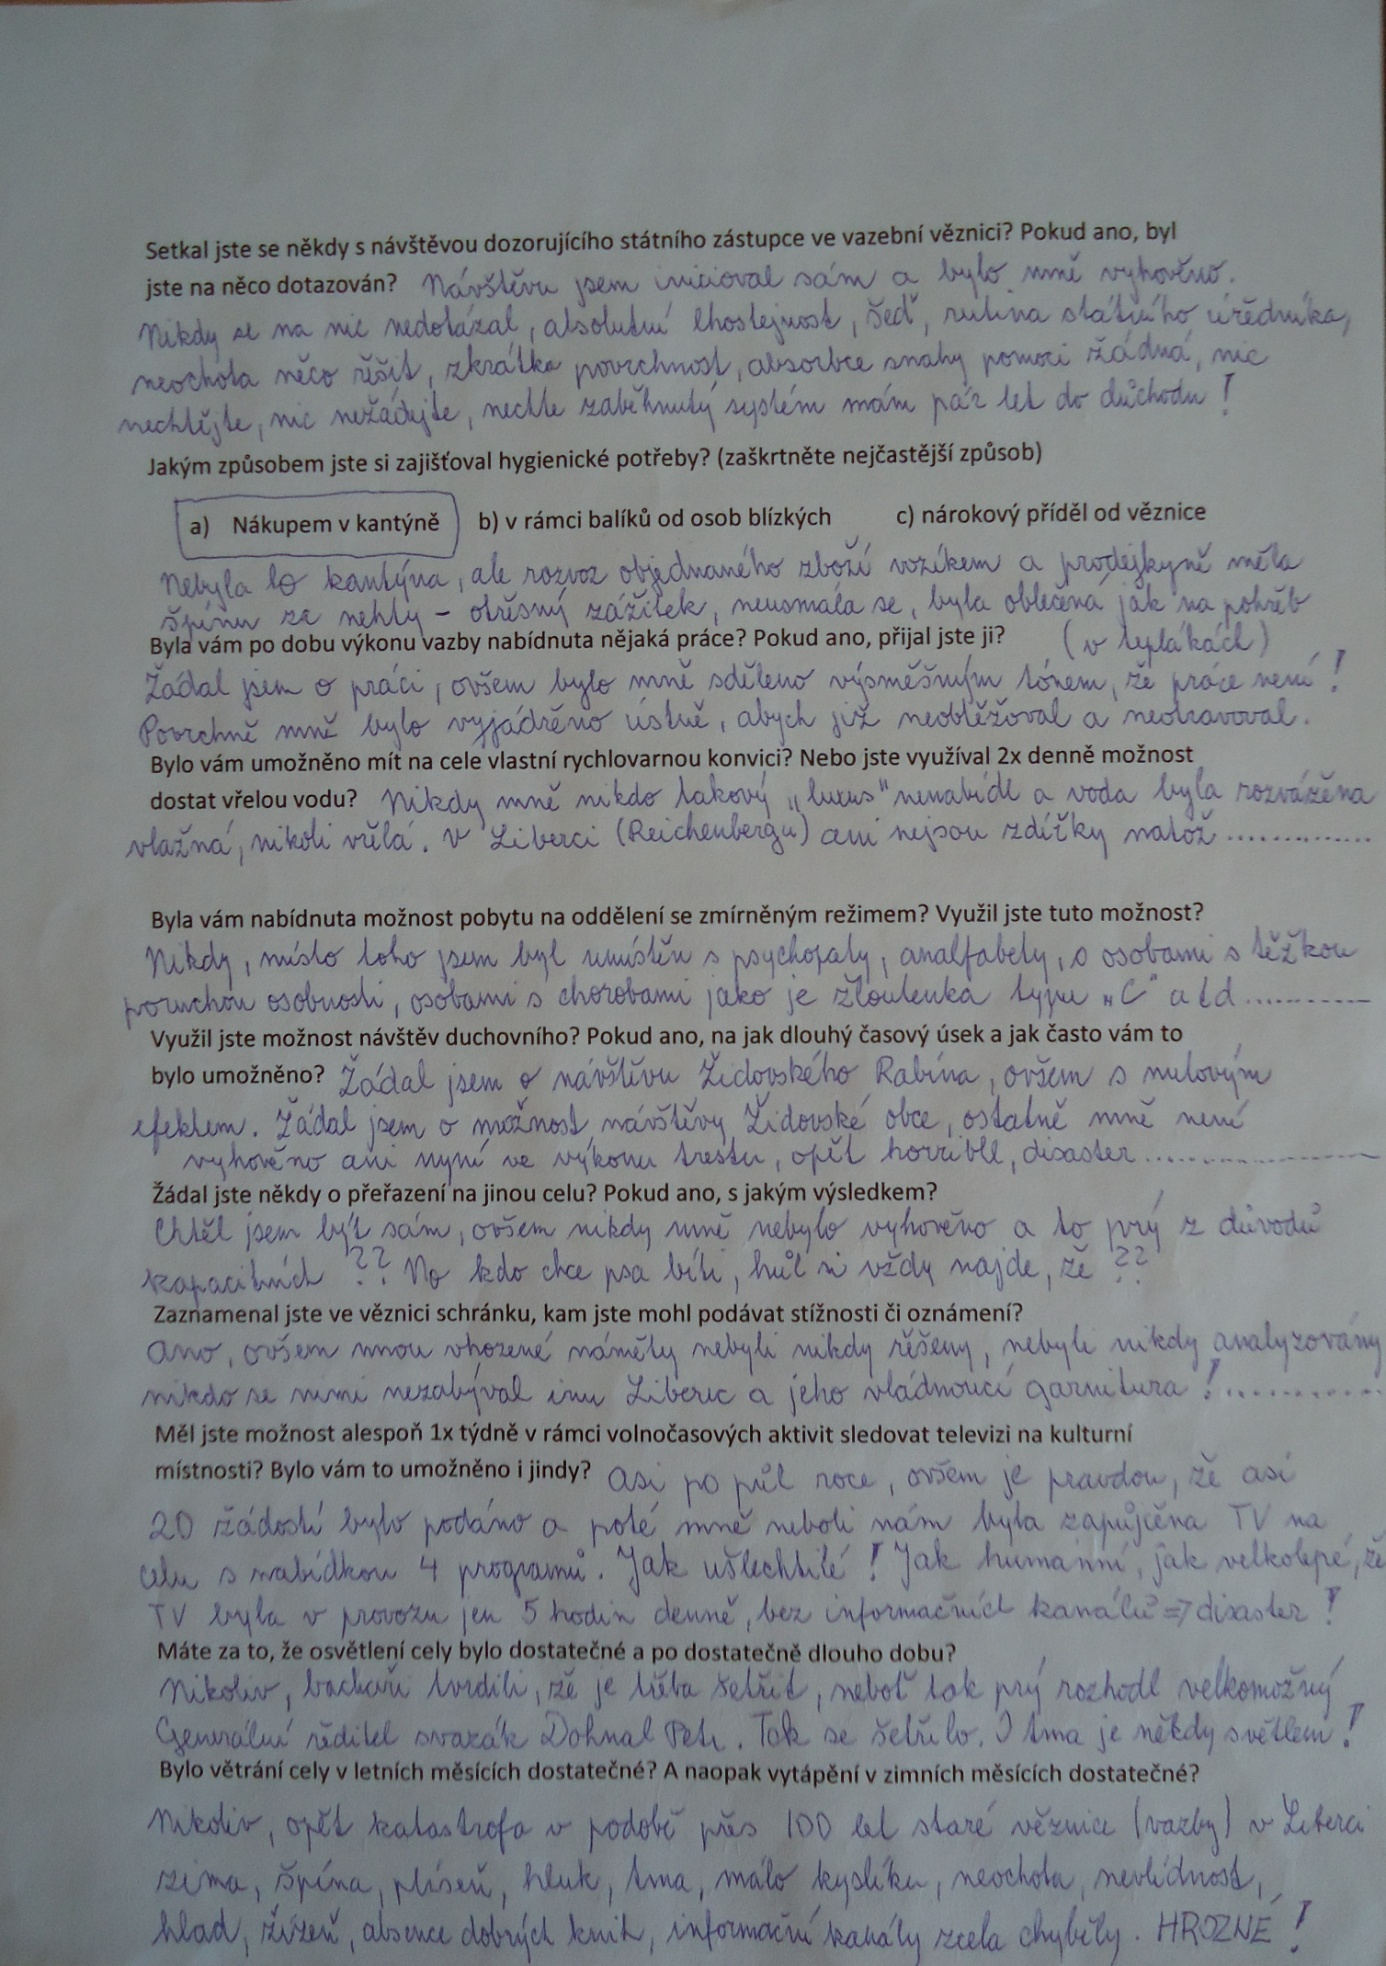 Setkal jste se někdy s návštěvou dozorujícího státního zástupce ve vazební věznici? Pokud ano, byl
jste na něco dotazován? Návštěvu jsem inicioval sám a bylo mně vyhověno.
Nikdy se na nic nedotázal, absolutní lhostejnost, šeď, rutina státního úředníka,
neochota něco řěšit, zkrátka povrchnost, absorbce snahy pomoci žádná, nic
nechtějte, nic nežádejte, nechte zaběhnutý systém mám pár let do důchodu!
Jakým způsobem jste si zajišťoval hygienické potřeby? (zaškrtněte nejčastější způsob)
a) Nákupem v kantýně b) v rámci balíků od osob blízkých c) nárokový příděl od věznice
Nebyla to kantýna, ale rozvoz objednaného zboží vozíkem a prodejkyně měla
špínu za nehty – otřesný zážitek, neusmála se, byla oblečená jak na pohřeb
Byla vám po dobu výkonu vazby nabídnuta nějaká práce? Pokud ano, přijal jste ji? (v teplákách)
Žádal jsem o práci, ovšem bylo mně sděleno výsměšným tónem, že práce není!
Povrchně mně bylo vyjádřěno ústně, abych již neobtěžoval a neotravoval.
Bylo vám umožněno mít na cele vlastní rychlovarnou konvici? Nebo jste využíval 2x denně možnost
dostat vřelou vodu? Nikdy mně nikdo takový „luxus" nenabídl a voda byla rozvážěna
vlažná, nikoli vřělá. V Liberci (Reichenbergu) ani nejsou zdířky natož ..............
Byla vám nabídnuta možnost pobytu na oddělení se zmírněným režimem? Využil jste tuto možnost?
Nikdy, místo toho jsem byl umístěn s psychopaty, analfabety, s osobami s těžkou
poruchou osobnosti, osobami s chorobami jako je žloutenka typu „C" atd ............
Využil jste možnost návštěv duchovního? Pokud ano, na jak dlouhý časový úsek a jak často vám to
bylo umožněno? Žádal jsem o návštěvu Židovského Rabína, ovšem s nulovým
efektem. Žádal jsem o možnost návštěvy Židovské obce, ostatně mně není
vyhověno ani nyní ve výkonu trestu, opět horribll, disaster ..................
Žádal jste někdy o přeřazení na jinou celu? Pokud ano, s jakým výsledkem?
Chtěl jsem být sám, ovšem nikdy mně nebylo vyhověno a to prý z důvodů
kapacitních ?? No kdo chce psa bíti, hůl si vždy najde, že ??
Zaznamenal jste ve věznici schránku, kam jste mohl podávat stížnosti či oznámení?
Ano, ovšem mnou vhozené náměty nebyli nikdy řěšeny, nebyli nikdy analyzovány
nikdo se nimi nezabýval inu Liberec a jeho vládnoucí garnitura! ............
Měl jste možnost alespoň 1x týdně v rámci volnočasových aktivit sledovat televizi na kulturní
místnosti? Bylo vám to umožněno i jindy? Asi po půl roce, ovšem je pravdou, že asi
20 žádostí bylo podáno a poté mně neboli nám byla zapůjčěna TV na
celu s nabídkou 4 programů. Jak ušlechtilé! Jak humánní, jak velkolepé, že
TV byla v provozu jen 5 hodin denně, bez informačních kanálů => disaster!
Máte za to, že osvětlení cely bylo dostatečné a po dostatečně dlouho dobu?
Nikoliv, bachaři tvrdili, že je třěba šetřit, neboť tak prý rozhodl velkomožný
Generální ředitel svazák Dohnal Petr. Tak se šetřilo. I tma je někdy světlem!
Bylo větrání cely v letních měsících dostatečné? A naopak vytápění v zimních měsících dostatečné?
Nikoliv, opět katastrofa v podobě přes 100 let staré věznice (vazby) v Liberci
zima, špína, plíseň, hluk, tma, málo kyslíku, neochota, nevlídnost,
hlad, žízeň, absence dobrých knih, informační kanály zcela chyběly. HROZNÉ!